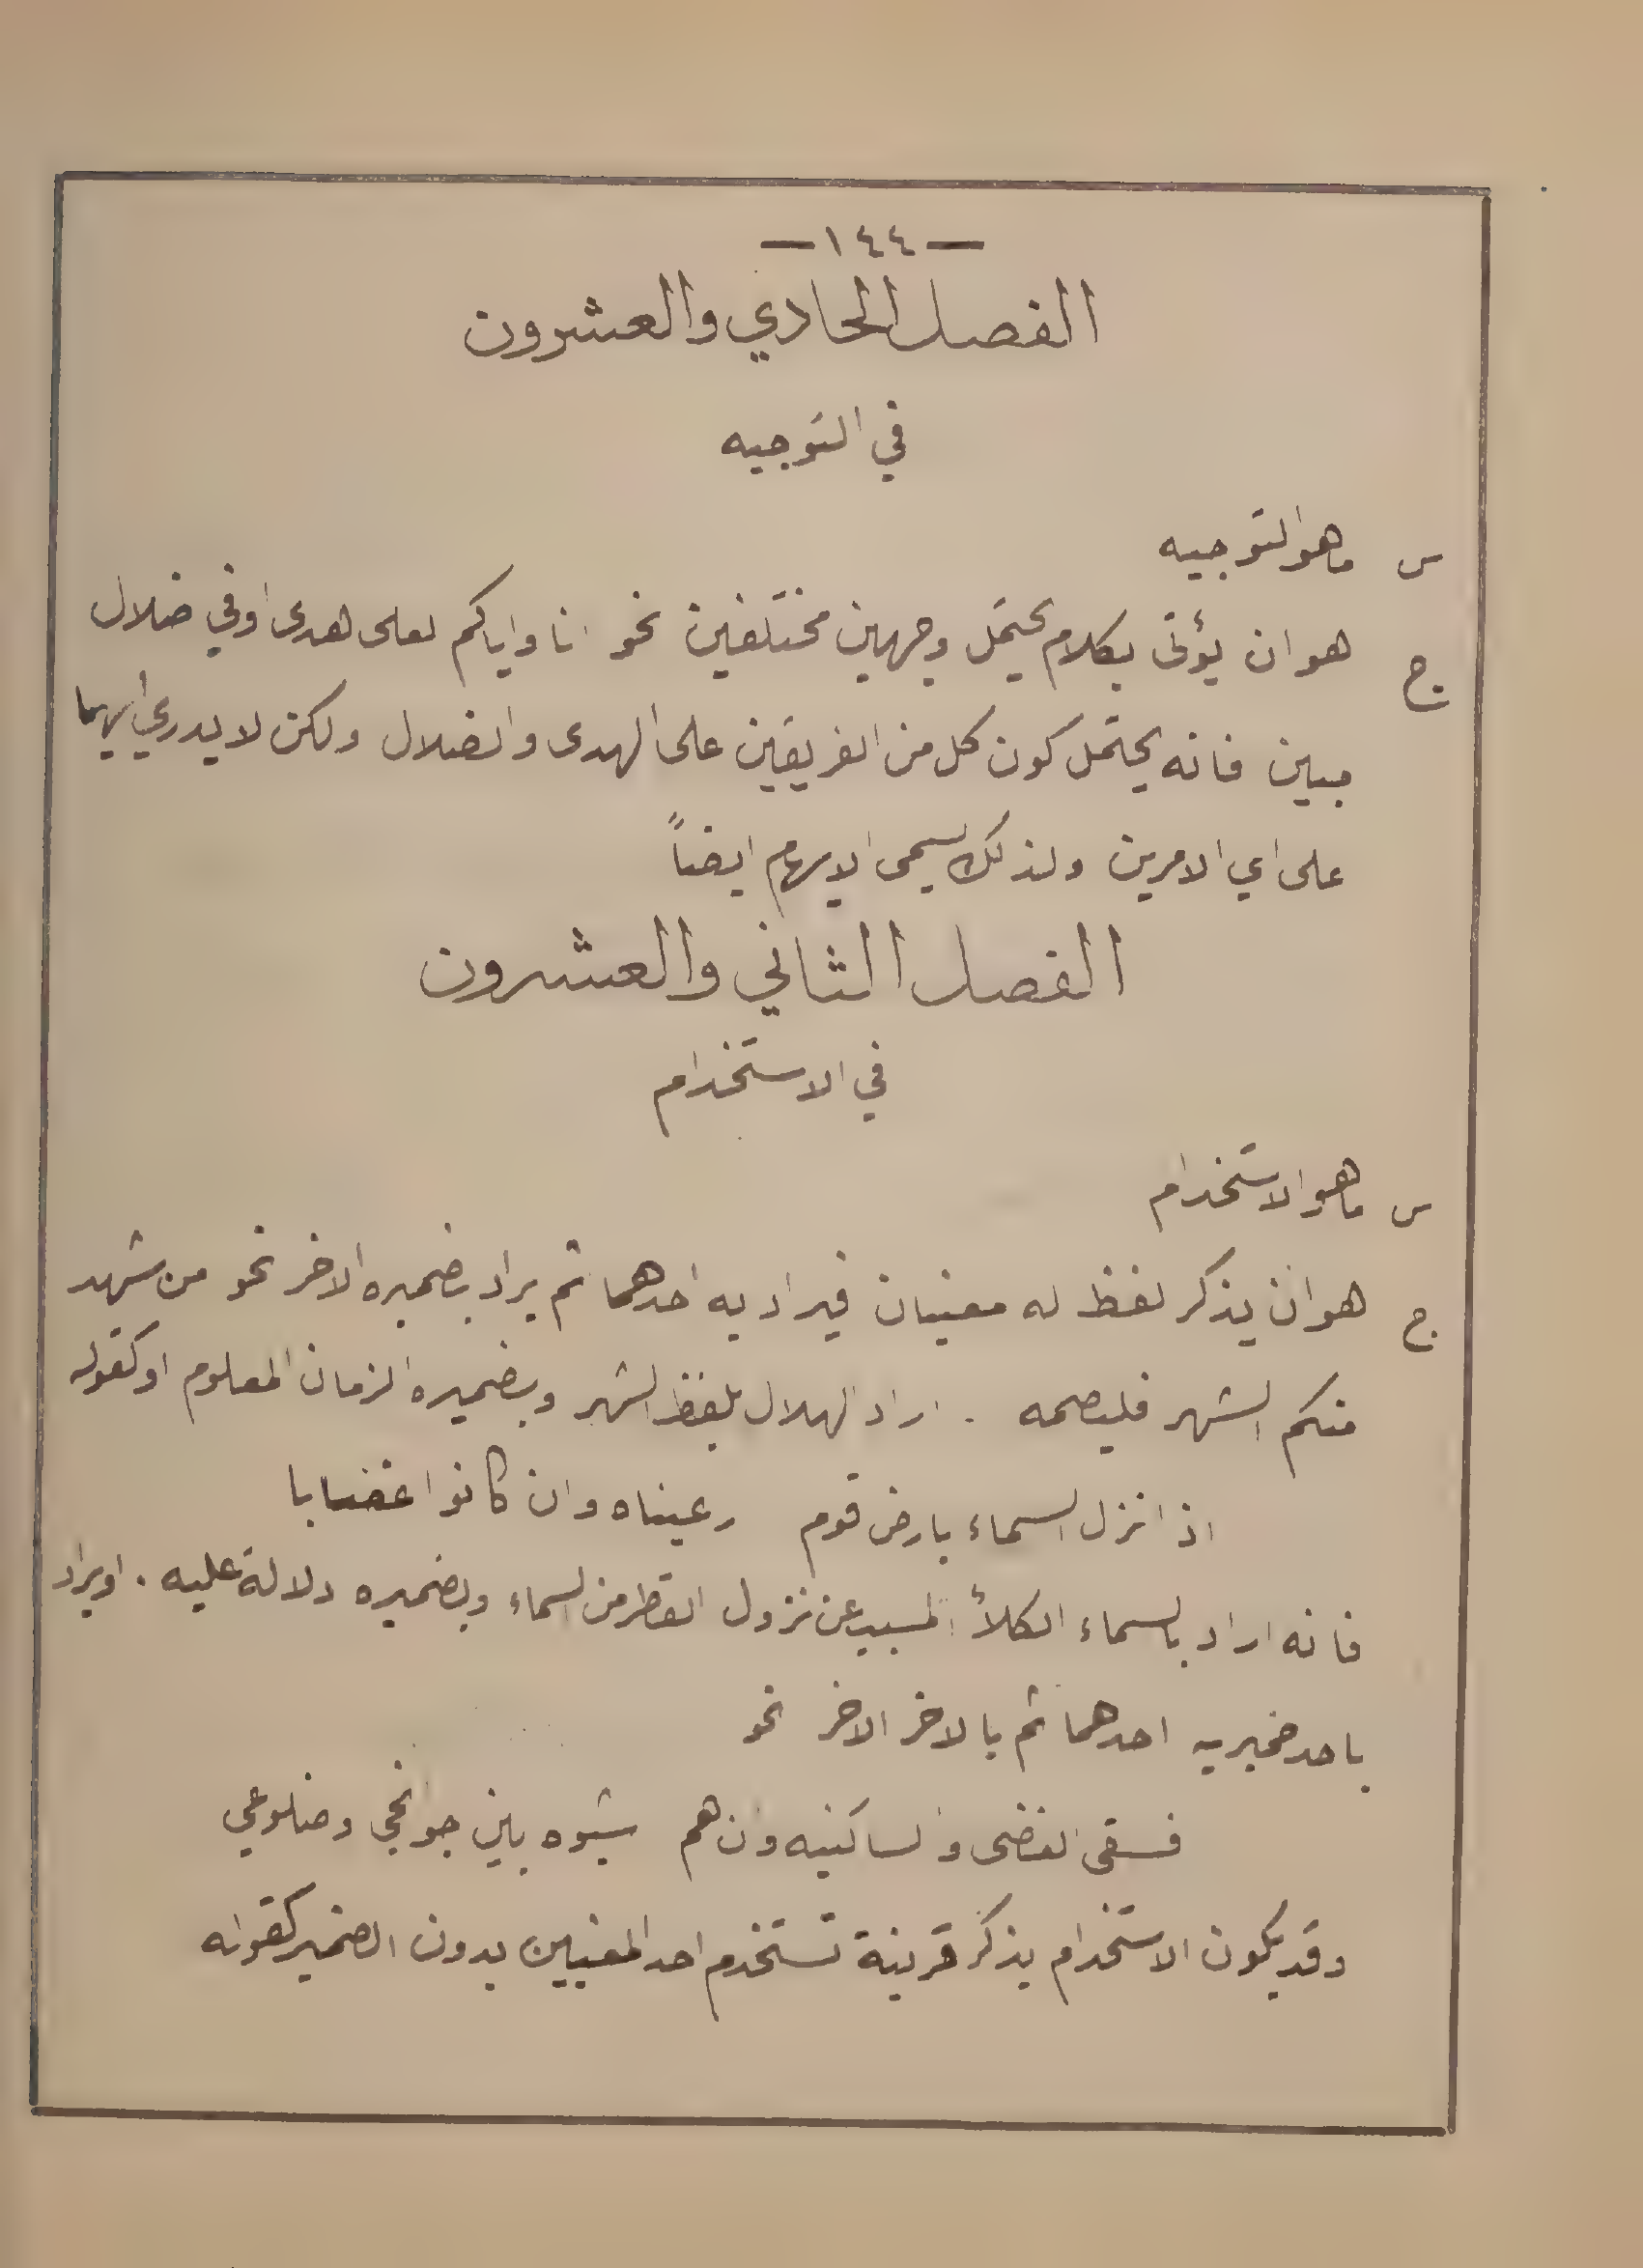 — ١٤٤ —
الفصل الحادي والعشرون
في التوجيه
س ماهو التوجيه
ج هو ان يؤتى بكلام يحتمل وجهين مختلفين نحو انا واياكم لعلى هدى او في ضلال
مبين فانه يحتمل كون كل من الفريقين على الهدى والضلال ولكن لا يدري ايهما
على اي الامرين ولذلك يسمى الابهام ايضاً
الفصل الثاني والعشرون
في الاستخدام
س ماهو الاستخدام
ج هو ان يذكر لفظ له معنيان فيراد به احدهما ثم يراد بضميره الاخر نحو من شهد
منكم الشهر فليصمه . اراد الهلال بلفظ الشهر وبضميره الزمان المعلوم او كقوله
اذا نزل السماء بارض قوم رعيناه وان كانوا غضابا
فانه اراد بالسماء الكلأ المسبب عن نزول القطر من السماء وبضميره دلالة عليه . او يراد
باحد ضميريه احدهما ثم بالاخر الاخر نحو
فسقى الغضى والساكنيه وان هم شبوه بين جوانحي وضلوعي
وقد يكون الاستخدام بذكر قرينة تستخدم احد المعنيين بدون الضمير كقوله